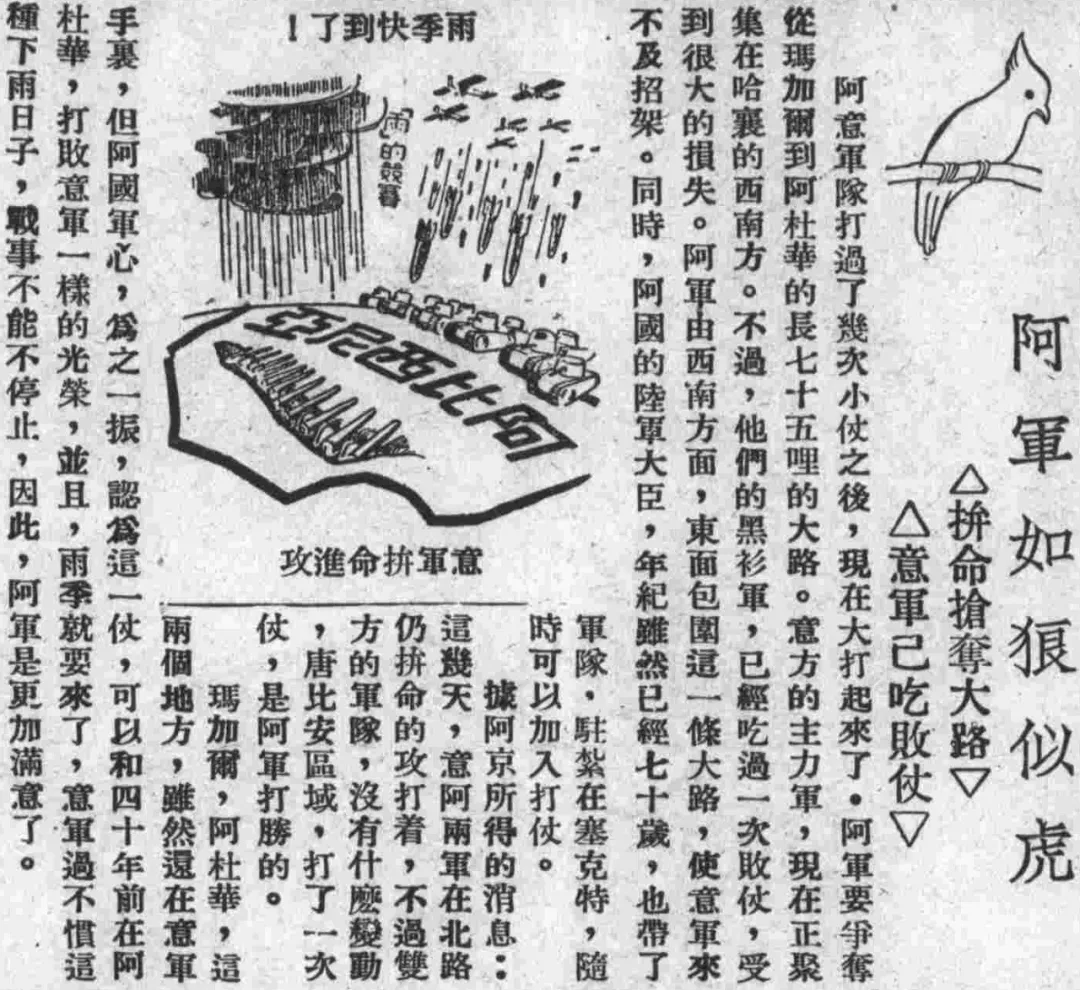 阿軍如狼似虎
△拚命搶奪大路▽
△意軍己吃敗仗▽
阿意軍隊打過了幾次小仗之後，現在大打起來了。阿軍要爭奪
從瑪加爾到阿杜華的長七十五哩的大路。意方的主力軍，現在正聚
集在哈襄的西南方。不過，他們的黑衫軍，已經吃過一次敗仗，受
到很大的損失。阿軍由西南方面，東面包圍這一條大路，使意軍來
不及招架。同時，阿國的陸軍大臣，年紀雖然已經七十歲，也帶了
軍隊，駐紮在塞克特，隨
時可以加入打仗。
據阿京所得的消息：
這幾天，意阿兩軍在北路
仍拚命的攻打着，不過雙
方的軍隊，沒有什麽變動
，唐比安區域，打了一次
仗，是阿軍打勝的。
瑪加爾，阿杜華，這
兩個地方，雖然還在意軍
手裏，但阿國軍心，爲之一振，認爲這一仗，可以和四十年前在阿
杜華，打敗意軍一樣的光榮，並且，雨季就要來了，意軍過不慣這
種下雨日子，戰事不能不停止，因此，阿軍是更加滿意了。
雨季快到了！
雨的
阿比西尼亞
意軍拚命進攻